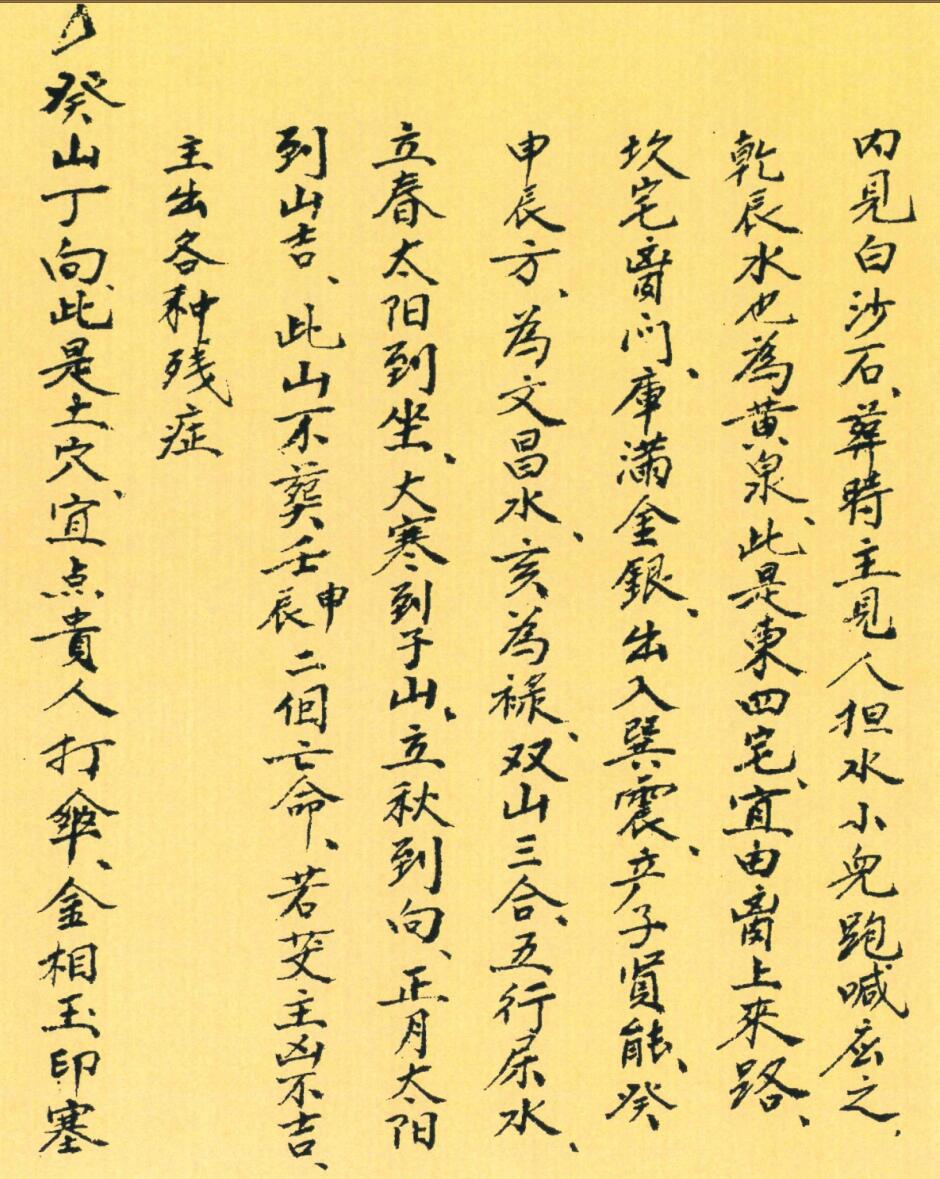 内見白沙石、葬時主見人担水小兒跑喊应之、
乾辰水也為黄泉、此是東四宅、宜由离上來路、
坎宅离门、庫满金銀、出入巽震、产子賢能、癸
申辰方、為文昌水、亥為禄、双山三合、五行屎水、
立春太阳到坐、大寒到子山、立秋到向、正月太阳
到山吉、此山不葬壬申辰二個亡命、若茔主凶不吉、
主出各种残症
癸山丁向、此是土穴、宜点貴人打傘、金相玉印塞